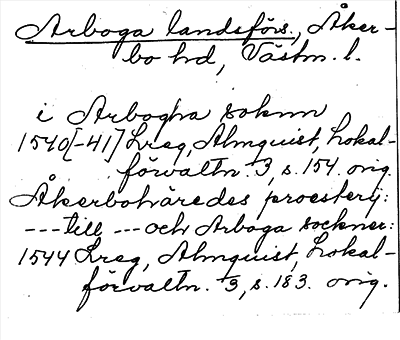 Arboga landsförs., Åker-
bo hd, Västm. l.
i Arbogha soknn
1540[-41] Lreg, Almquist, Lokal-
förvaltn. 3, s. 154. orig.
Åkerbohäredes proesterij:
---till --- och Arboga sockner:
1544 Lreg, Almquist, Lokal-
förvaltn. 3, s. 183. orig.